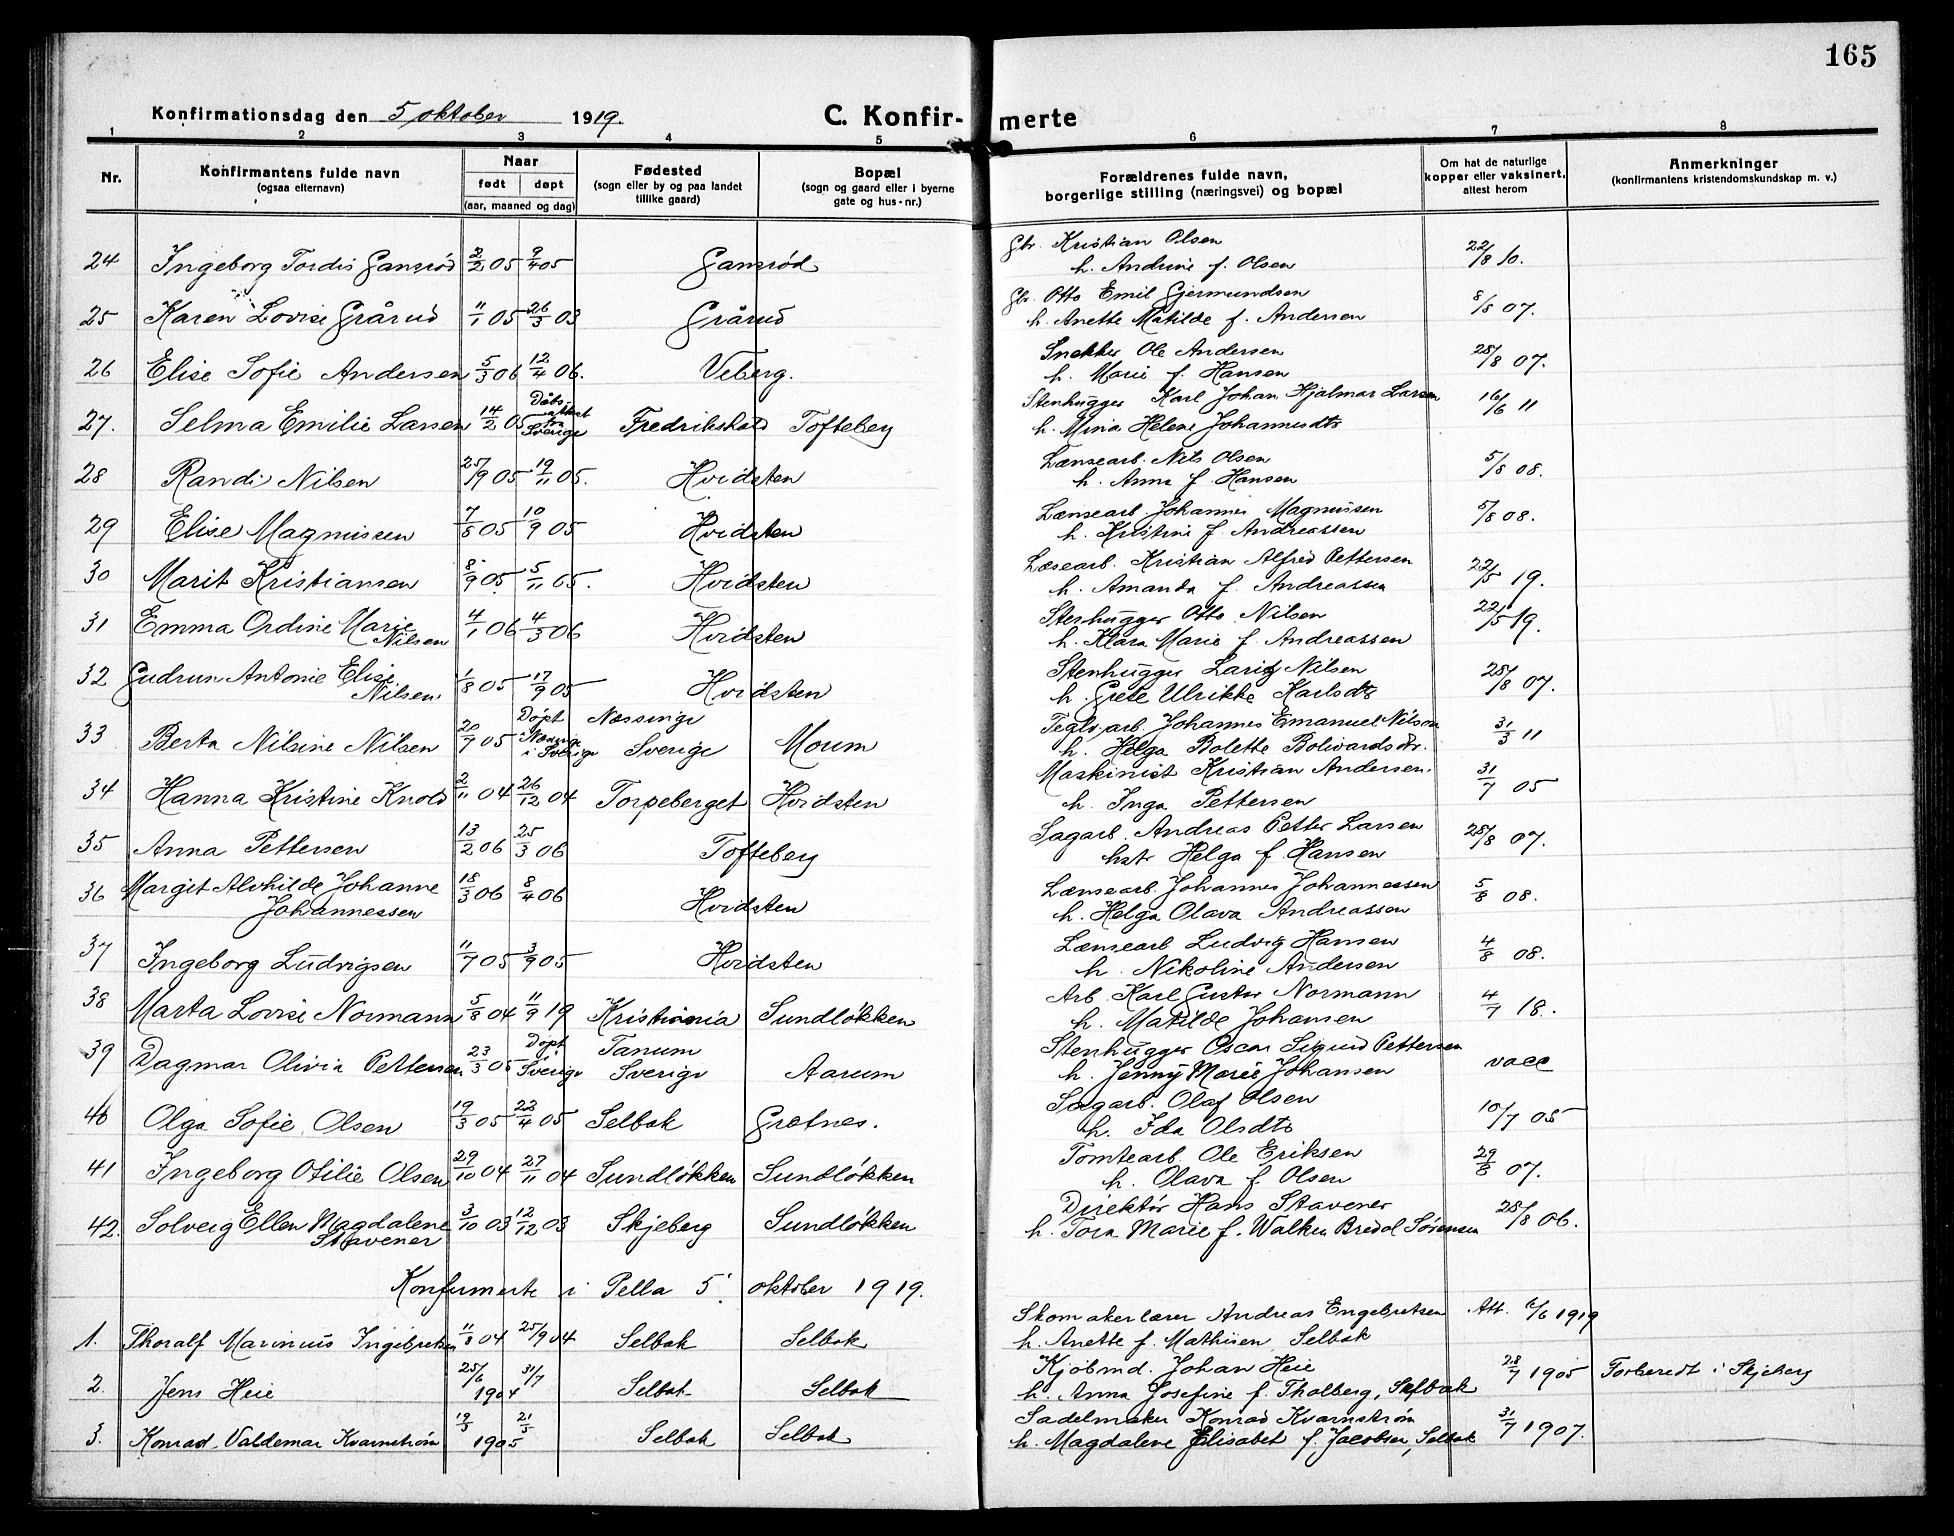 165
Konfirmationsdag den 5 oktober 1919. C. Konfir- merte
1 2 3 4 5 6 7 8
Nr. Konfirmantens fulde navn (ogsaa efternavn) Naar født døpt (aar, maaned og dag) Fødested (sogn eller by og paa landet tillike gaard) Bopæl (sogn og gaard eller i byerne gate og hus-nr.) Forældrenes fulde navn, borgerlige stilling (næringsvei) og bopæl Om hat de naturlige kopper eller vaksinert, attest herom Anmerkninger (konfirmantens kristendomskundskap m. v.)
24 Ingeborg Tordis Gansrød 2/2 05 9/4 05 Gansrød Gbr. Kristian Olsen 22/8 10.
h. Andrine f. Olsen
25 Karen Lovise Grårud 11/1 05 26/3 03 Grårud Gbr. Otto Emil Gjermundsen 8/8 07.
h. Anette Matilde f. Andersen
26 Elise Sofie Andersen 5/3 06 12/4 06. Veberg. Snekker Ole Andersen 28/8 07.
h. Marie f. Hansen
27. Selma Emilie Larsen 14/2 05 Dåbsattest fra Sverige Fredrikshald Tofteberg Stenhugger Karl Johan Hjalmar Larsen 16/6 11
h. Mina Helene Johannesdtr
28 Randi Nilsen 25/9 05 19/11 05. Hvidsten Lænsearb. Nils Olsen 5/8 08.
h. Anna f Hansen
29 Elise Magnussen 7/8 05 10/9 05 Hvidsten Lænsearb. Johannes Magnussen 5/8 08.
h. Kristine f. Andreassen
30 Marit Kristiansen 8/9 05 5/11 05. Hvidsten Læsearb. Kristian Alfred Pettersen 22/5 19.
h. Amanda f. Andreassen
31 Emma Ordine Marie Nilsen 4/1 06 4/3 06 Hvidsten Stenhugger Otto Nilsen 22/5 19.
h. Klara Marie f. Andreassen
32 Gudrun Antonie Elise Nilsen 1/8 05 17/9 05 Hvidsten Stenhugger Laritz Nilsen 28/8 07.
h. Grete Ulrikke Karlsdtr
33 Berta Nilsine Nilsen 20/7 05 Døpt i Næsinge i Sverige Næssinge Sverige Moum Teglv.arb. Johannes Emanuel Nilson 31/3 11
h. Helga Bolette Bolivardsdtr.
34 Hanna Kristine Knold 2/11 04 26/12 04 Torpeberget Hvidsten Maskinist Kristian Andersen 31/7 05
h. Inga Pettersen
35 Anna Pettersen 13/2 06 25/3 06 Tofteberg Sagarb. Andreas Petter Larsen 28/8 07.
hstr Helga f. Hansen
36 Margit Alvhilde Johanne Johannessen 18/3 06 8/4 06 Hvidsten Lænsearb. Johannes Johannessen 5/8 08.
h. Helga Olava Andreassen
37 Ingeborg Ludvigsen 11/7 05 3/9 05 Hvidsten Lænsearb Ludvig Hansen 4/8 08.
h. Nikoline Andersen
38 Marta Lovise Normann 5/8 04 11/9 19 Kristiania Sundløkken Arb. Karl Gustav Normann 4/7 18.
h. Matilde Johansen
39 Dagmar Olivia Pettersen 23/3 05 Døpt i Sverige Tanum Sverige Aarum Stenhugger Oscar Sigurd Pettersen vacc
h. Jenny Marie Johansen
40 Olga Sofie Olsen 19/3 05 22/4 05 Selbak Grætnes. Sagarb. Olaf Olsen 10/7 05
h. Ida Olsdtr
41 Ingeborg Otilie Olsen 29/10 04 27/11 04 Sundløkken Sundløkken Tomtearb. Ole Eriksen 29/8 07.
h. Olava f Olsen
42. Solveig Ellen Magdalene Stavener 3/10 03 12/12 03 Skjeberg Sundløkken Direktør Hans Stavener 28/8 06.
h. Tora Marie f. Walken Bredal Sørensen
Konfirmerte i Pella 5. oktober 1919.
1. Thoralf Marinius Ingebretsen 11/8 04 25/9 04 Selbak Selbak Skomakerlærer Andreas Engebretsen Att. 6/6 1919
h. Anette f. Mathisen Selbak
2. Jens Heie 25/6 31/7 1904 Selbak Selbak Kjøbmd. Johan Heie 28/7 1905 Forberedt i Skjeberg
h. Anna Josefine f. Tholberg, Selbak
3. Konrad Valdemar Kvarnstrøm 19/3 21/5 1905 Selbak Selbak Sadelmaker Konrad Kvarnstrøm 31/7 1907.
h. Magdalene Elisabet f. Jacobsen, Selbak